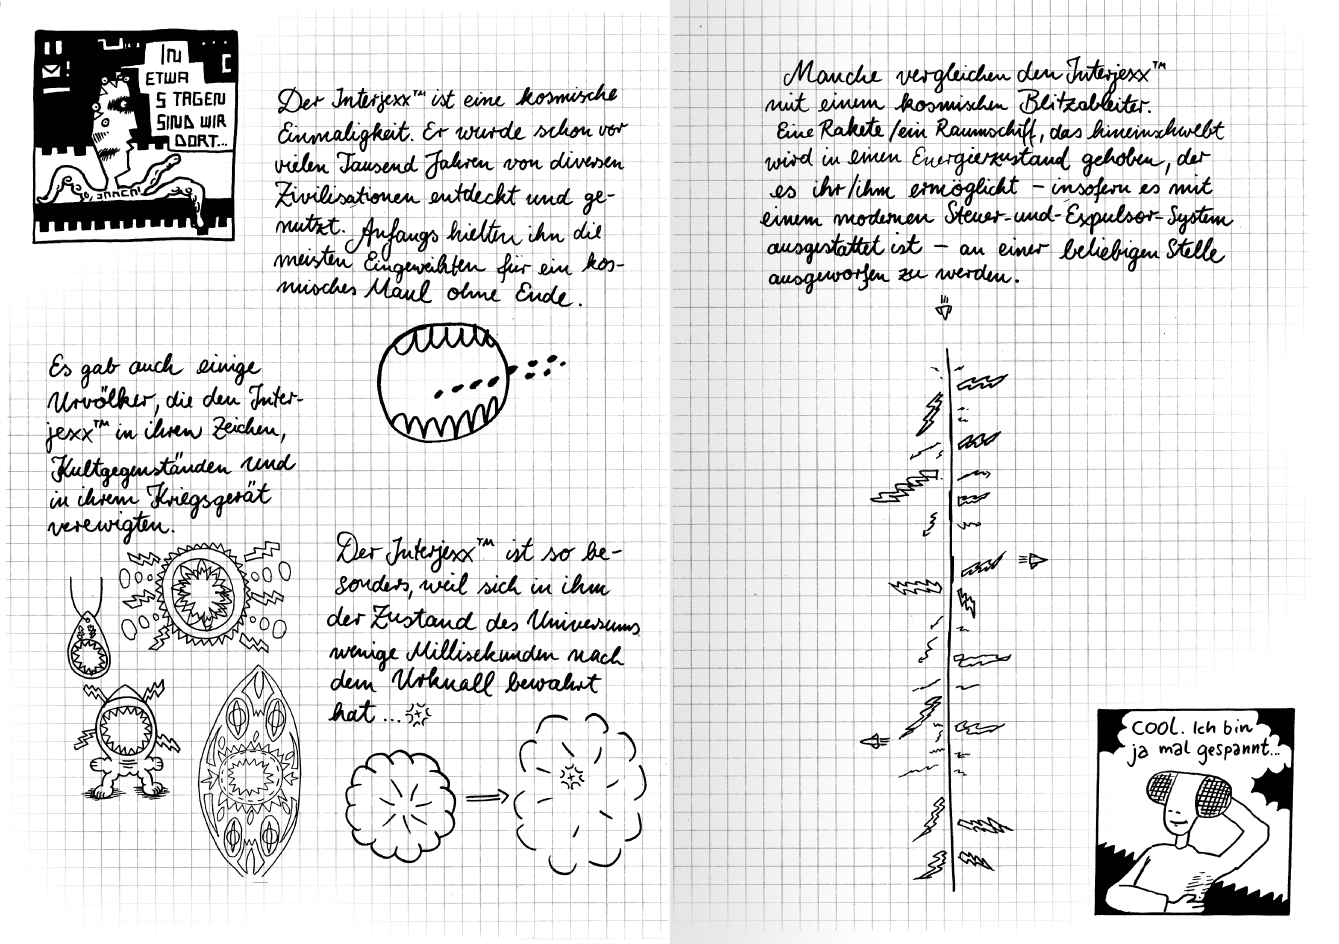 IN
ETWA
5 TAGEN
SIND WIR
DORT...
Der Interjexx™ ist eine kosmische
Einmaligkeit. Er wurde schon vor
vielen Tausend Jahren von diversen
Zivilisationen entdeckt und ge-
nutzt. Anfangs hielten ihn die
meisten Eingeweihten für ein kos-
misches Maul ohne Ende.
Es gab auch einige
Urvölker, die den Inter-
jexx™ in ihren Zeichen,
Kultgegenständen und
in ihrem Kriegsgerät
verewigten.
Der Interjexx™ ist so be-
sonders, weil sich in ihm
der Zustand des Universums
wenige Millisekunden nach
dem Urknall bewahrt
hat...
Manche vergleichen den Interjexx™
mit einem kosmischen Blitzableiter.
Eine Rakete/ein Raumschiff, das hineinschwebt
wird in einen Energiezustand gehoben, der
es ihr/ihm ermöglicht – insofern es mit
einem modernen Steuer-und-Expulsor-System
ausgestattet ist – an einer beliebigen Stelle
ausgeworfen zu werden.
COOL. Ich bin
ja mal gespannt...